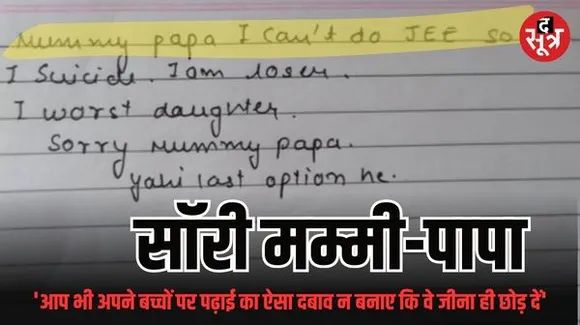 Mummy papa I can't do JEE so
द सूत्र
I suicide. I am loser.
I worst daughter.
Sorry Mummy papa.
yahi last option he.
सॉरी मम्मी-पापा
'आप भी अपने बच्चों पर पढ़ाई का ऐसा दबाव न बनाए कि वे जीना ही छोड़ दें'